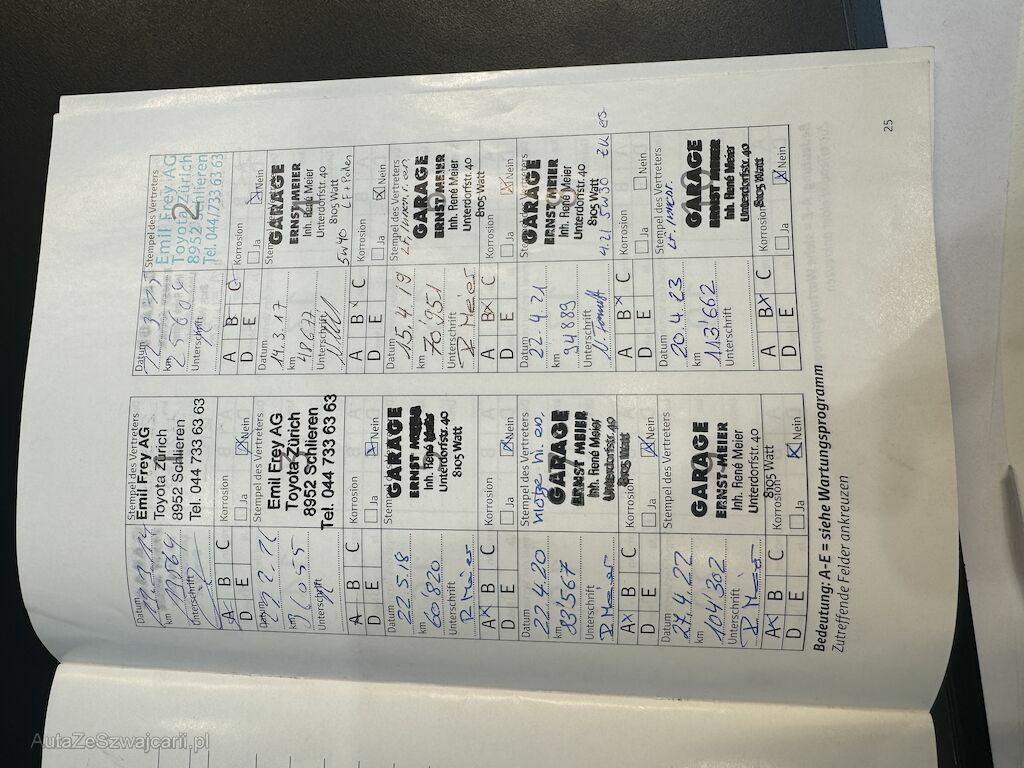 Datum
Stempel des Vertreters
Emil Frey AG
Toyota Zürich
8952 Schlieren
Tel. 044 733 63 63
km
Unterschrift
A B C
D E
Korrosion
Ja Nein
Datum
Stempel des Vertreters
Emil Frey AG
Toyota Zürich
8952 Schlieren
Tel. 044/733 63 63
2
km
Unterschrift
A B C
D E
Korrosion
Ja Nein
Datum
Stempel des Vertreters
Emil Frey AG
Toyota Zürich
8952 Schlieren
Tel. 044 733 63 63
km
Unterschrift
A B C
D E
Korrosion
Ja Nein
Datum
14.3.17
km
48677
Unterschrift
GARAGE
ERNST MEIER
Inh. René Meier
Unterdorfstr. 40
8105 Watt
5W40
A B C
D E
Korrosion
Ja Nein
Datum
22.5.18
km
60'820
Unterschrift
R Meier
GARAGE
ERNST MEIER
Inh. René Meier
Unterdorfstr. 40
8105 Watt
A B C
D E
Korrosion
Ja Nein
Datum
15.4.19
km
70'951
Unterschrift
R Meier
Stempel des Vertreters
GARAGE
ERNST MEIER
Inh. René Meier
Unterdorfstr. 40
8105 Watt
A B C
D E
Korrosion
Ja Nein
Datum
22.4.20
km
83'567
Unterschrift
R Meier
Stempel des Vertreters
GARAGE
ERNST MEIER
Inh. René Meier
Unterdorfstr. 40
8105 Watt
A B C
D E
Korrosion
Ja Nein
Datum
22.4.21
km
94889
Unterschrift
Stempel des Vertreters
GARAGE
ERNST MEIER
Inh. René Meier
Unterdorfstr. 40
8105 Watt
4.2l 5W30
A B C
D E
Korrosion
Ja Nein
Datum
27.4.22
km
104'302
Unterschrift
R Meier
Stempel des Vertreters
GARAGE
ERNST MEIER
Inh. René Meier
Unterdorfstr. 40
8105 Watt
A B C
D E
Korrosion
Ja Nein
Datum
20.4.23
km
113'662
Unterschrift
Stempel des Vertreters
GARAGE
ERNST MEIER
Inh. René Meier
Unterdorfstr. 40
8105 Watt
A B C
D E
Korrosion
Ja Nein
Bedeutung: A-E = siehe Wartungsprogramm
Zutreffende Felder ankreuzen
25
AutaZeSzwajcarii.pl